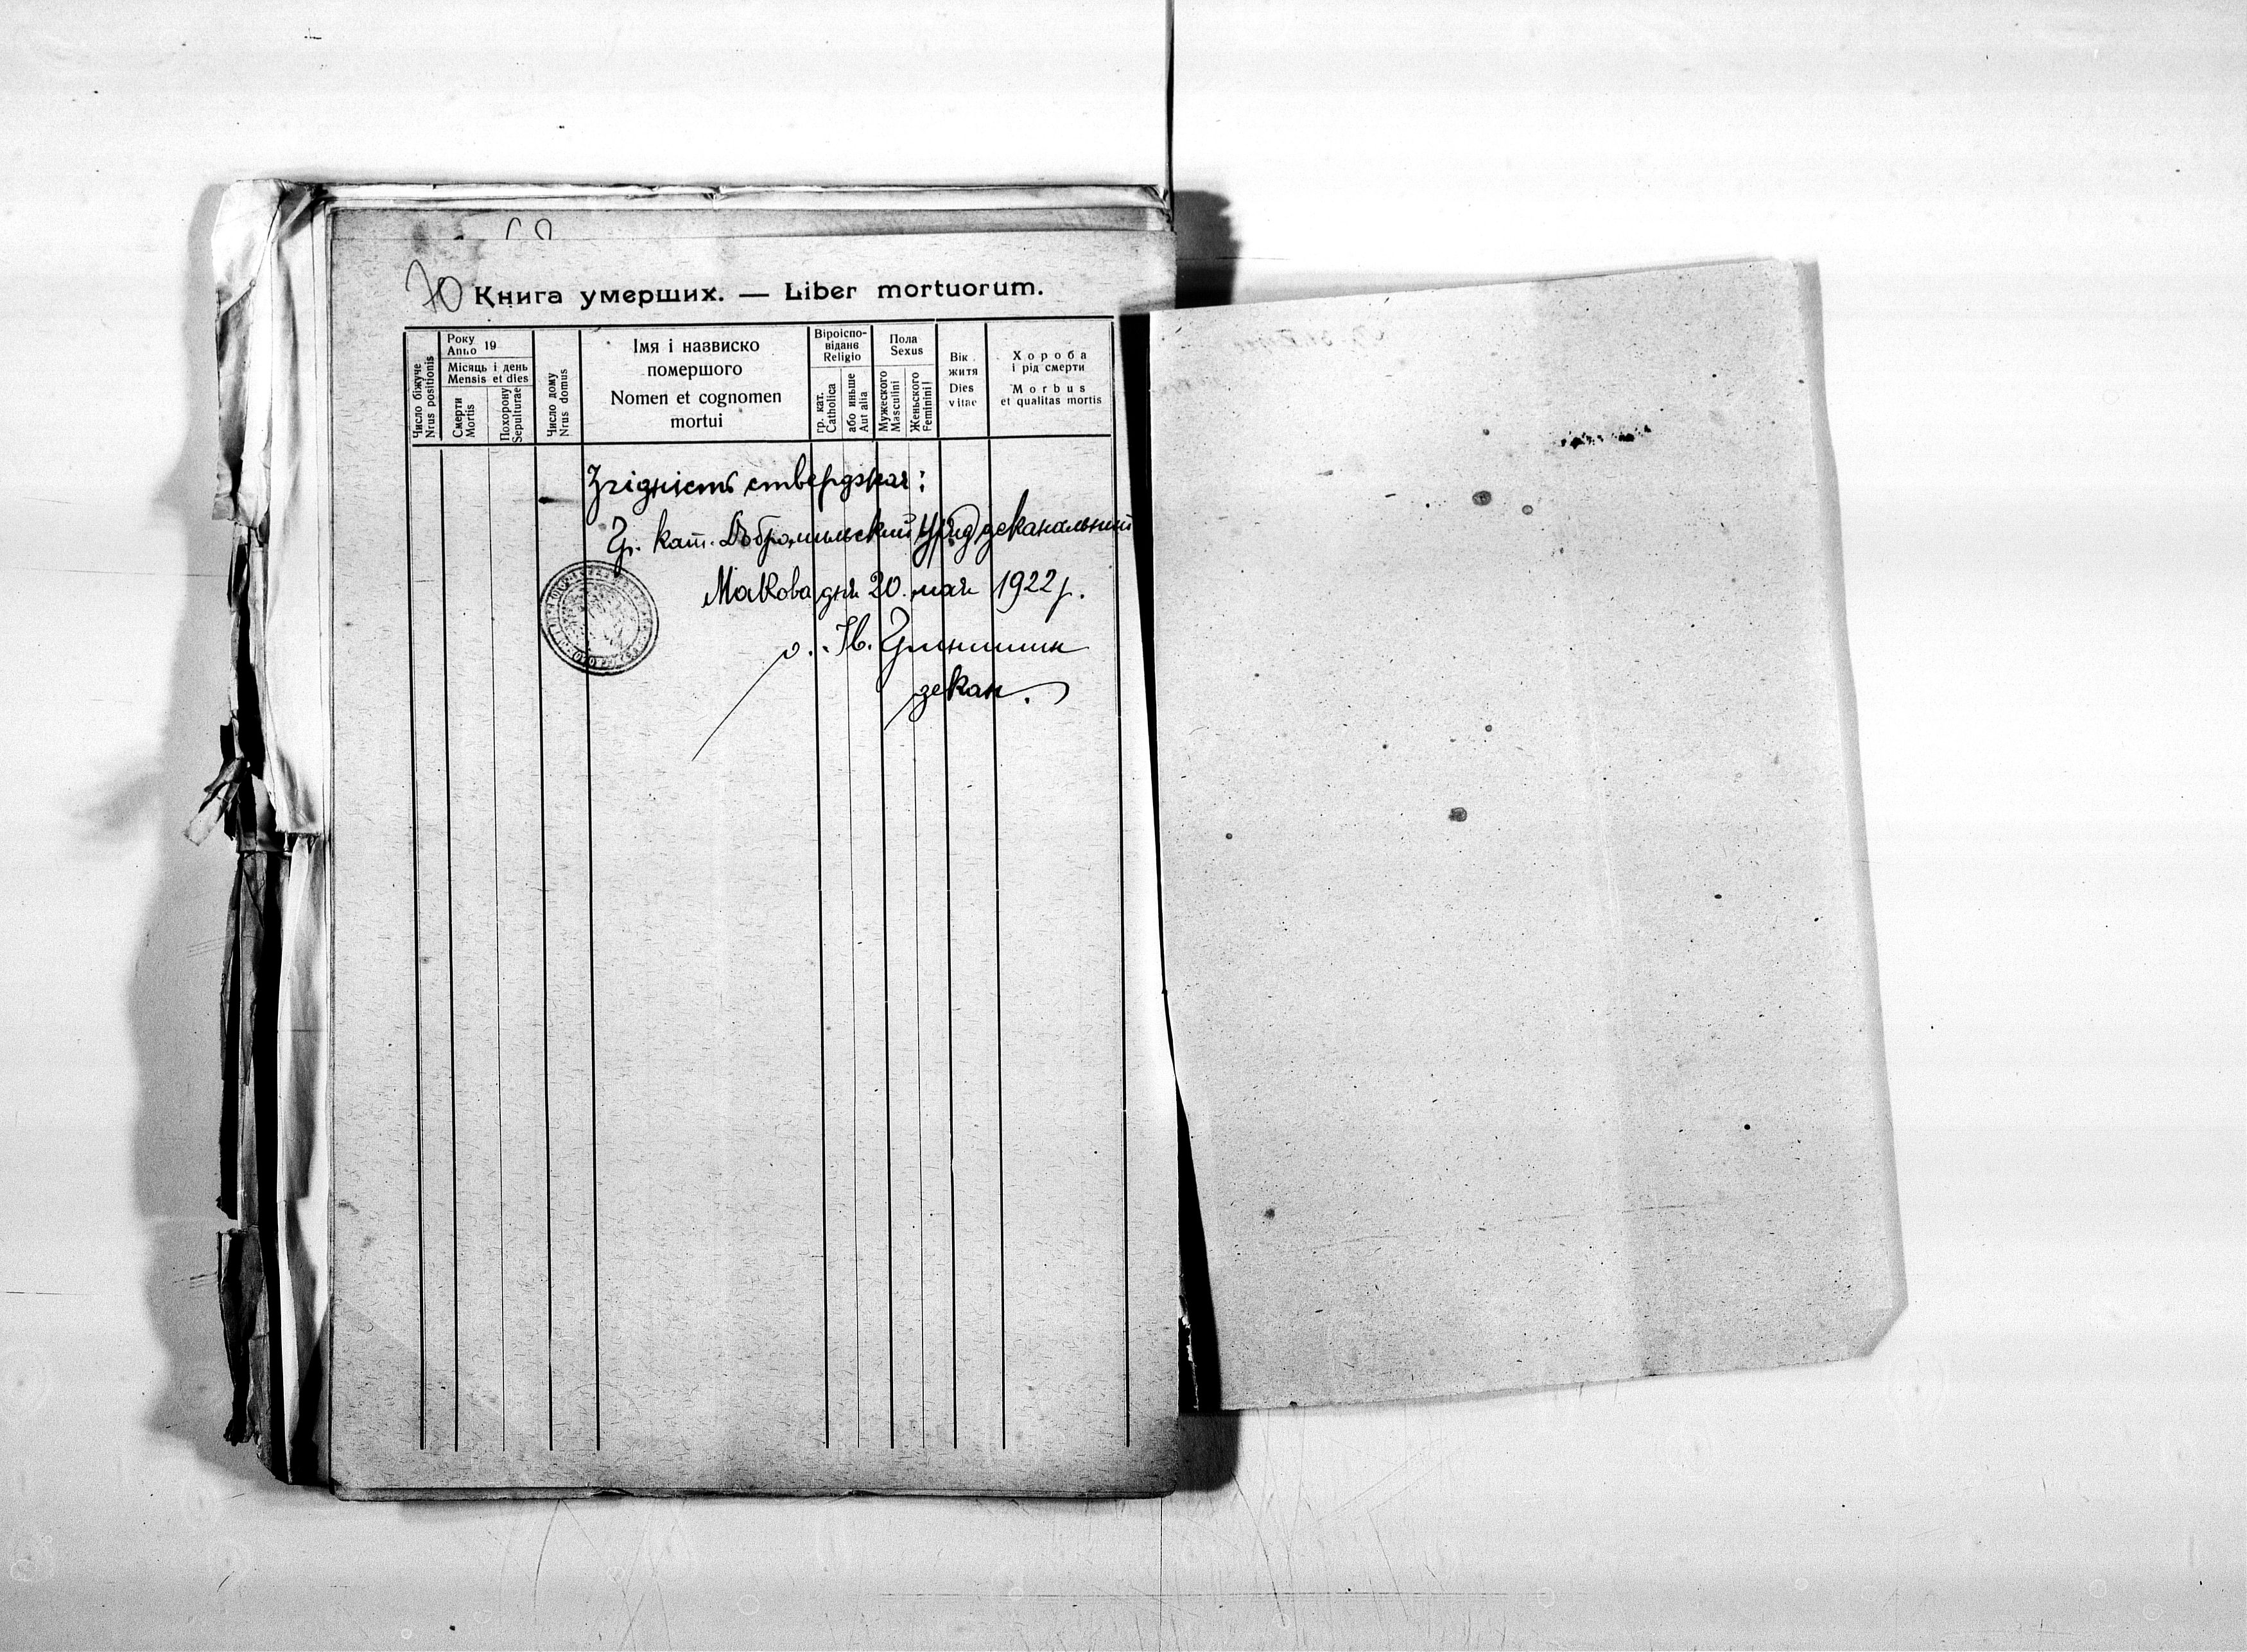 70
Книга умерших. — Liber mortuorum.
Число біжуче
Nrus positionis
Року
Anno 19
Місяць і день
Mensis et dies
Смерти
Mortis
Похорону
Sepulturae
Число дому
Nrus domus
Імя і назвиско
помершого
Nomen et cognomen
mortui
Віроіспо-
відане
Religio
гр. кат.
Catholica
або иньше
Aut alia
Пола
Sexus
Мужеского
Masculini
Женьского
Feminini
Вік
житя
Dies
vitae
Хороба
і рід смерти
Morbus
et qualitas mortis
Згідність стверджая:
Гр. кат. Добромильский Уряд деканальний
Макова дня 20. мая 1922 р.
о. Ів. Гринишин
декан.